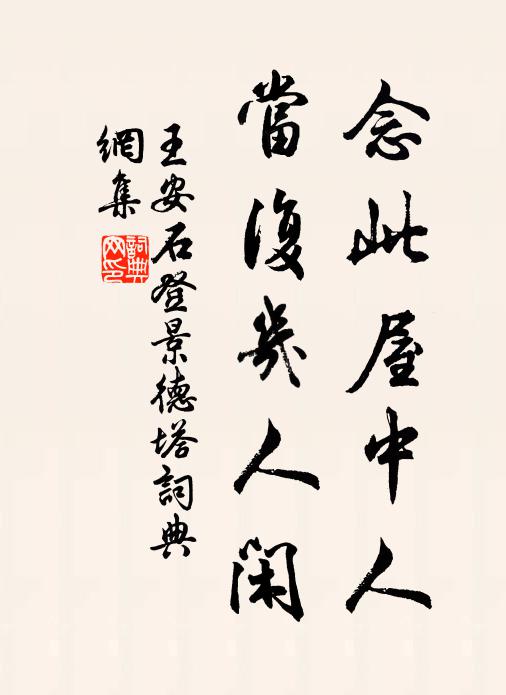 念此屋中人
當復幾人閑
王安石登景德塔詞典
網集
詞典
网印